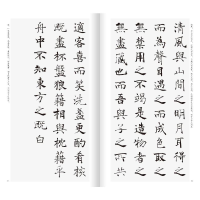 清風與山間之明月耳得之
而為聲目遇之而成色取之
無禁用之不竭是造物者之
無盡藏也而吾與子之所共
適客喜而笑洗盞更酌肴核
既盡杯盤狼籍相與枕藉乎
舟中不知東方之既白